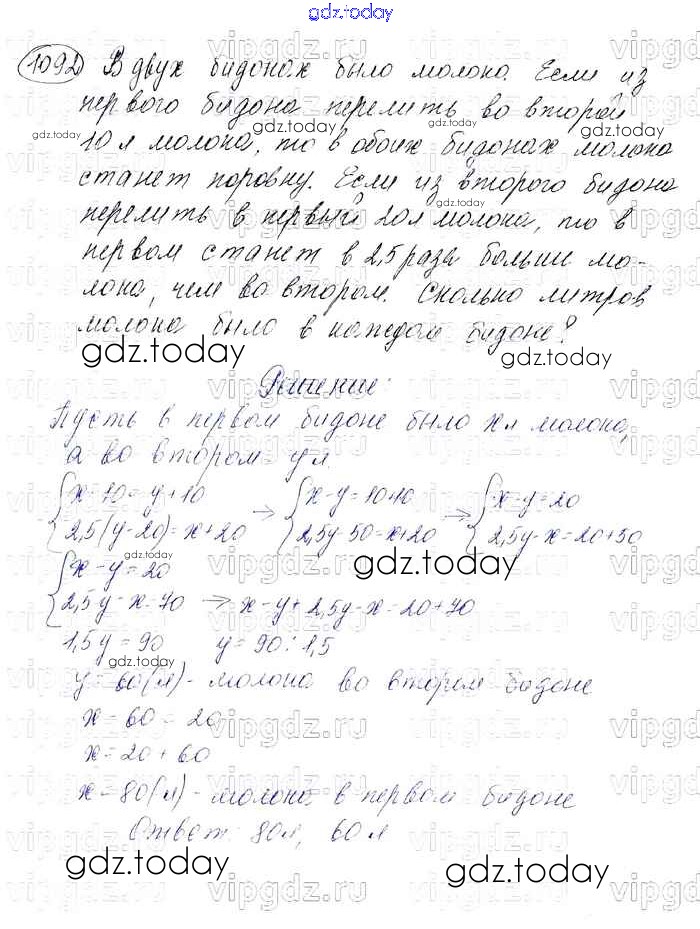 gdz.today
1092) В двух бидонах было молоко. Если из
первого бидона перелить во второй
10 л молока, то в обоих бидонах молока
станет поровну. Если из второго бидона
перелить в первый 20 л молока, то в
первом станет в 2,5 раза больше мо-
лока, чем во втором. Сколько литров
молока было в каждом бидоне?
gdz.today gdz.today
Решение:
Пусть в первом бидоне было x л молока,
а во втором - y л.
{x-10=y+10 → {x-y=10+10 → {x-y=20
{2,5(y-20)=x+20 {2,5y-50=x+20 {2,5y-x=20+50
gdz.today
{x-y=20
{2,5y-x=70 → x-y+2,5y-x=20+70
1,5y=90 y=90:1,5
gdz.today
y=60(л) - молока во втором бидоне
x-60=20
x=20+60
x=80(л) - молока в первом бидоне
Ответ: 80 л, 60 л
gdz.today gdz.today